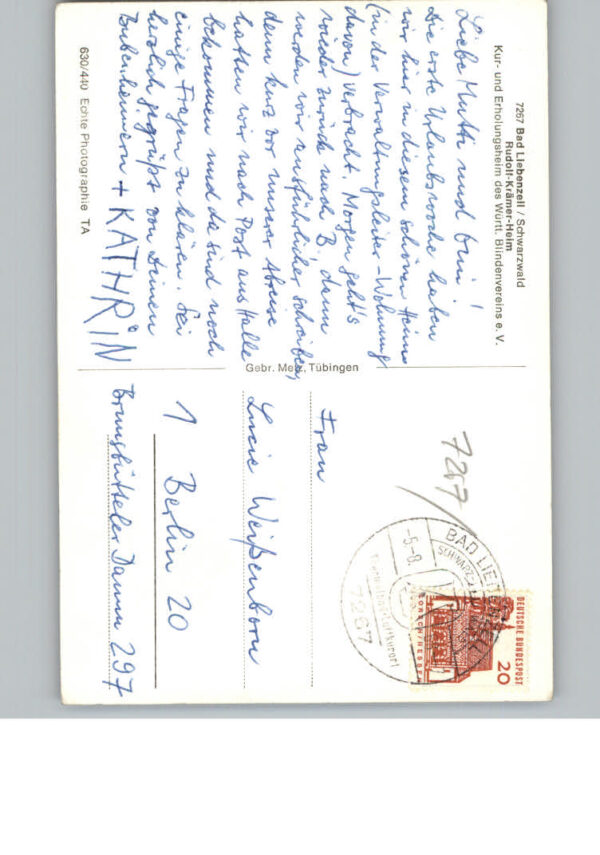 7267 Bad Liebenzell / Schwarzwald
Rudolf-Krämer-Heim
Kur- und Erholungsheim des Württ. Blindenvereins e. V.
Liebe Mutti und Evi!
Die erste Urlaubswoche haben
wir hier in diesem schönen Heim
(in der Verwaltungsleiter-Wohnung
davon) verbracht. Morgen geht's
wieder zurück nach B, dann
werden wir ausführlicher schreiben,
denn kurz vor unserer Abreise
hatten wir noch Post aus Halle
bekommen und da sind noch
einige Fragen zu klären. Sei
herzlich gegrüßt von Deinen
+ KATHRIN
630/440 Echte Photographie TA
Gebr. Metz, Tübingen
7267
BAD LIEBENZELL
SCHWARZWALD
-5.-8.
7267
DEUTSCHE BUNDESPOST
20
LORSCH/HESSEN
Frau
Lucie Weißenborn
1 Berlin 20
Brunsbütteler Damm 297